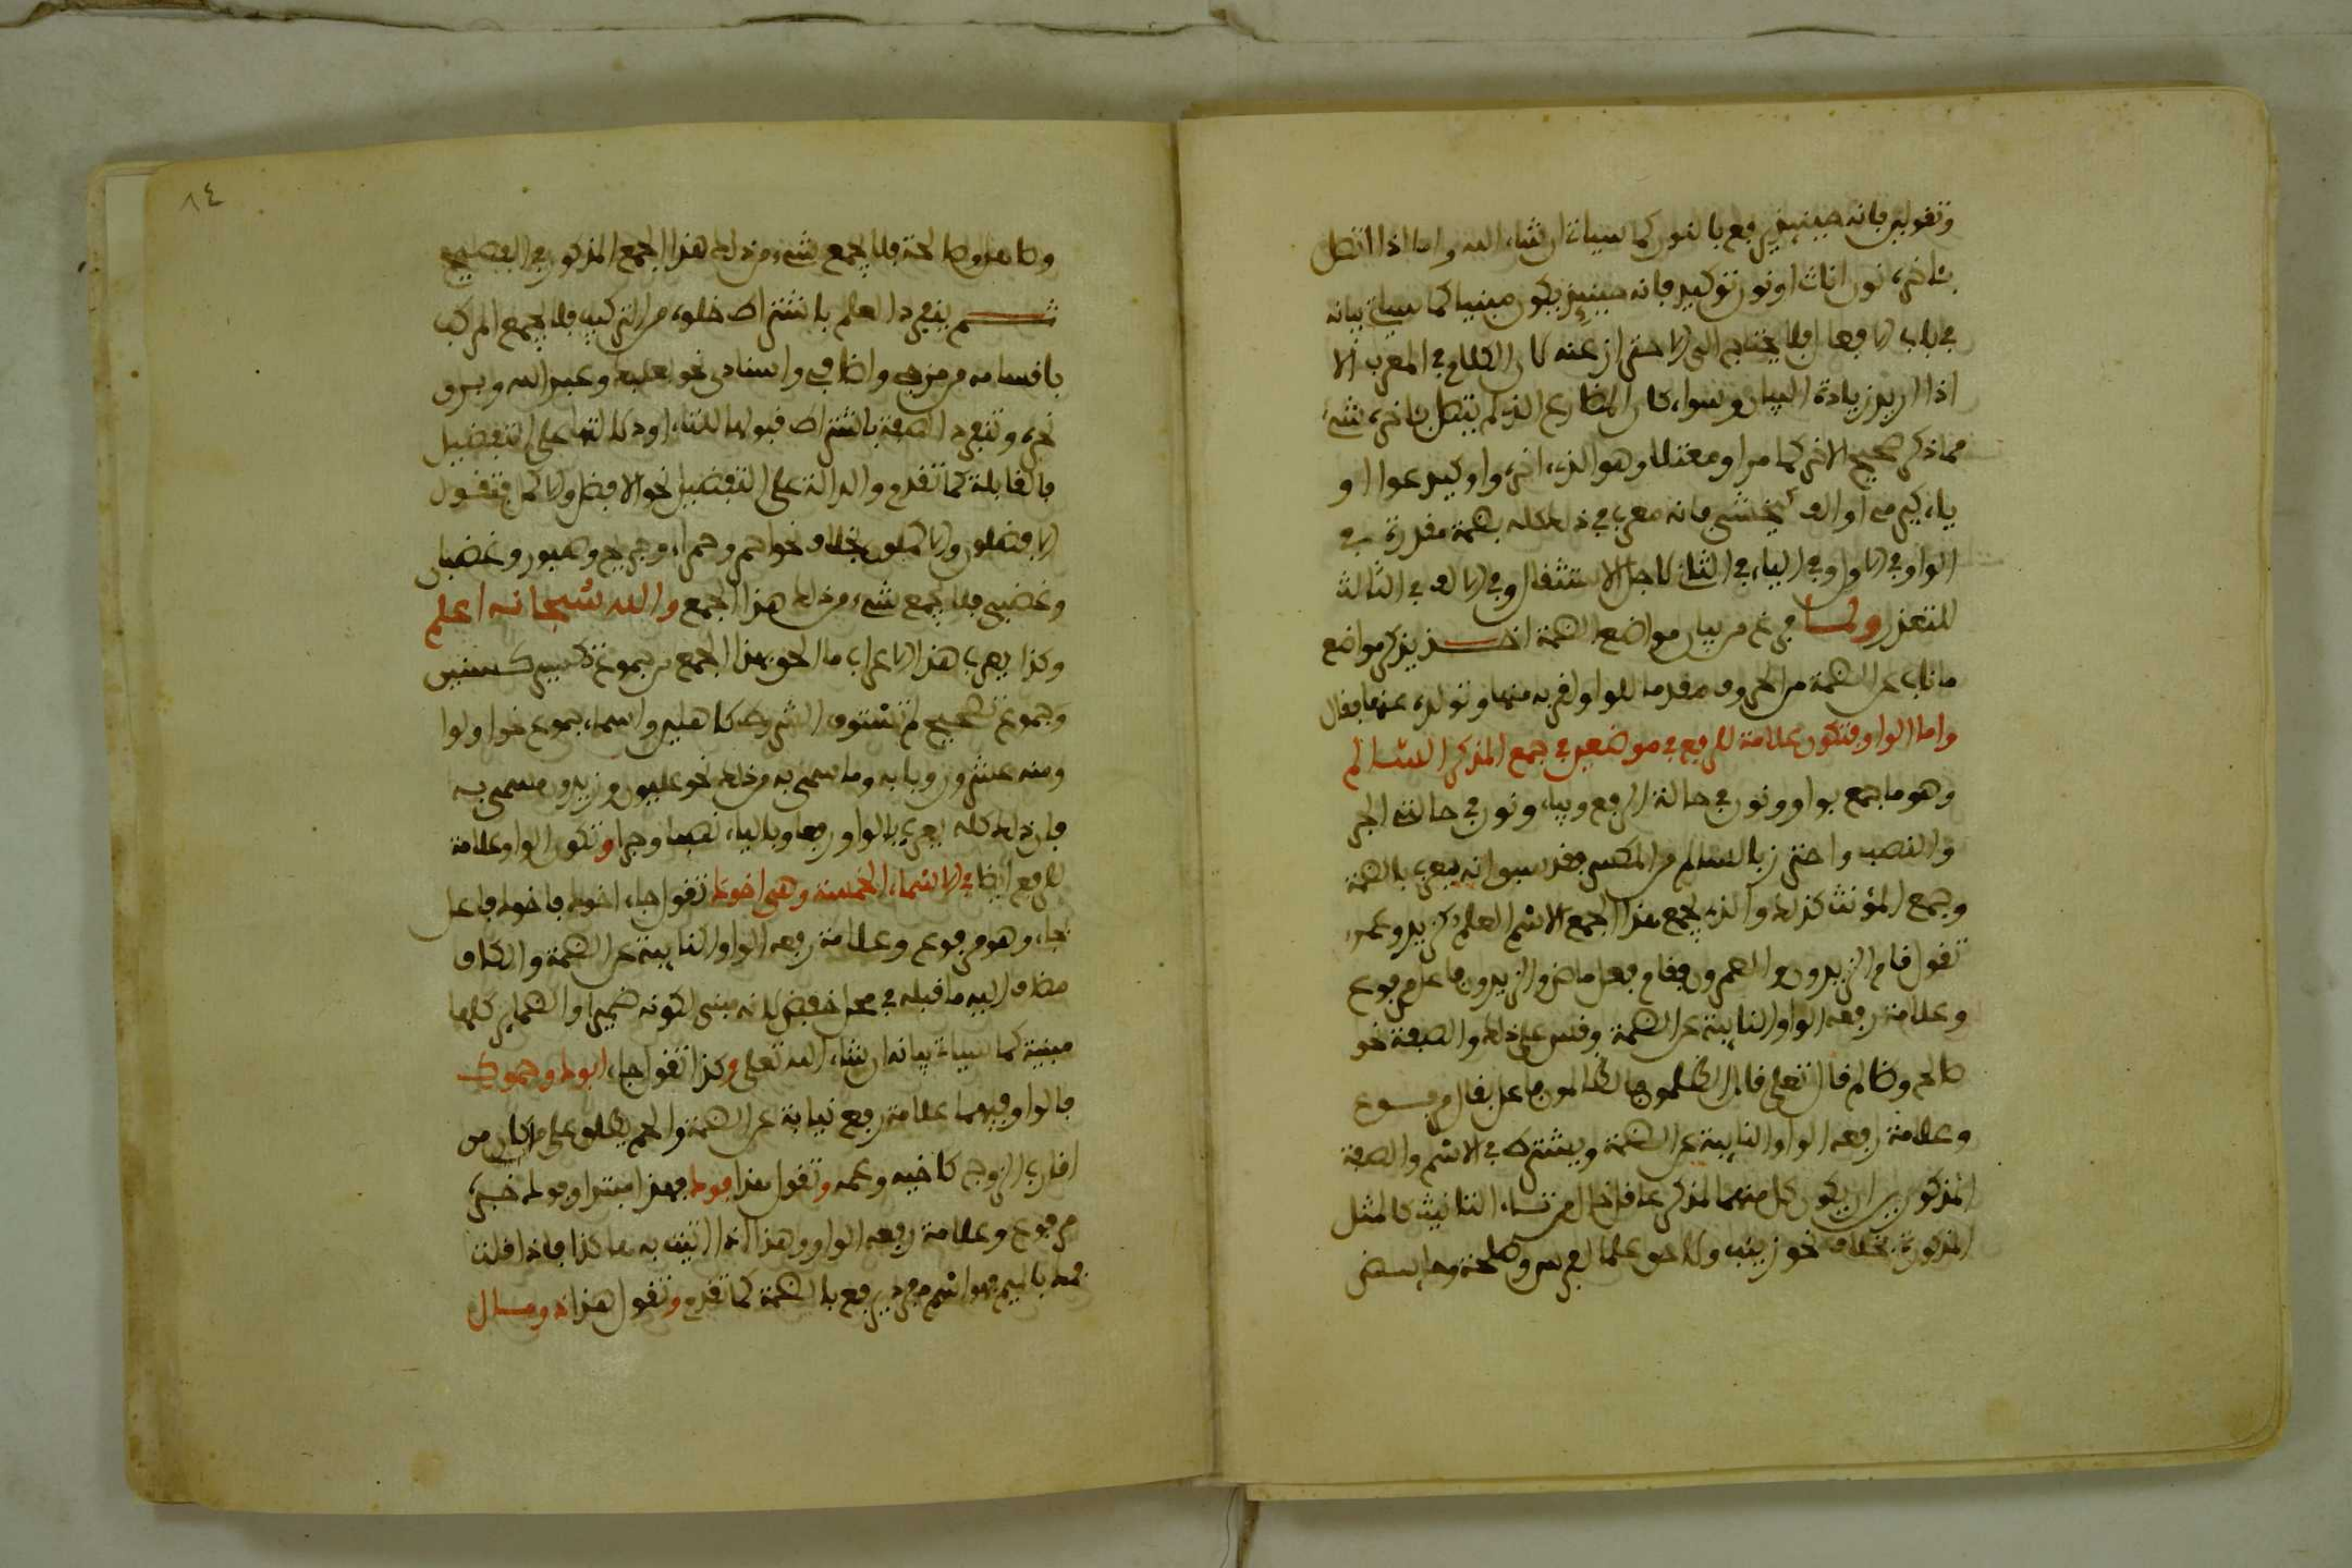 وتقولين فانه حينئذ يرفع بالنون كما سياتي ان شاء الله واما اذا اتصل
بآخره نون اناث او نون توكيد فانه حينئذ يكون مبنيا كما سياتي بيانه
في باب الافعال فلا يحتاج الى الاحتراز عنه لان الكلام في المعرب الا
اذا اريد زيادة البيان وسواء كان المضارع الذي لم يتصل بآخره شيء
مما ذكر صحيح الآخر كما مر او معتلا وهو الذي آخره واو كيدعوا او
ياء كيرمي او الف كيخشى فانه معرب في ذلك كله بضمة مقدرة في
الواو في الاول وفي الياء في الثاني لاجل الاستثقال وفي الالف في الثالث
للتعذر ولما فرغ من بيان مواضع الضمة اخذ يذكر مواضع
ما ناب عن الضمة من الحروف مقدما للواو لقربه منها وتولده عنها فقال
واما الواو فتكون علامة للرفع في موضعين في جمع المذكر السالم
وهو ما جمع بواو ونون في حالة الرفع وبياء ونون في حالة الجر
والنصب واحترز بالسالم من المكسر فقد سبق انه يعرب بالضمة
وجمع المؤنث كذلك والذي يجمع هذا الجمع الاسم العلم كزيد وعمرو
تقول قام الزيدون والعمرون فقام فعل ماض والزيدون فاعل مرفوع
وعلامة رفعه الواو النايبة عن الضمة وقس على ذلك والصفة نحو
صالح وظالم قال تعلى قال الظلمون فالظالمون فاعل بقال مرفوع
وعلامة رفعه الواو النايبة عن الضمة ويشترك في الاسم والصفة
المذكورين ان يكون كل منهما لمذكر عاقل خال من تاء التانيث كالمثل
المذكورة بخلاف نحو زينب ولاحق علما لفرس وطلحة
وطاهر وطالحة فلا يجمع شيء من ذلك هذا الجمع المذكور في الفصيح
ثم ينفرد العلم باشتراط خلوه من التركيب فلا يجمع المركب
باقسامه من مزجي واضافي واسنادي نحو بعلبك وعبد الله وبرق
نحره وتنفرد الصفة باشتراط قبولها للتاء او دلالتها على التفضيل
فالقابلة كما تقدم والدالة على التفضيل نحو الافضل والاكمل فتقول
الافضلون والاكملون بخلاف نحو احمر وحمراء وجريح وصبور وغضبان
وغضبى فلا يجمع شيء من ذلك هذا الجمع والله سبحانه اعلم
وكذا يعرب هذا الاعراب ما الحق بهذا الجمع من جموع تكسير كسنين
وجموع تصحيح لم تستوف الشروط كاهلين واسماء جموع نحو اولوا
ومنه عشرون وبابه وما سمي به من ذلك نحو عليون وزيدون مسمى به
فان ذلك كله يعرب بالواو رفعا وبالياء نصبا وجرا وتكون الواو علامة
للرفع ايضا في الاسماء الخمسة وهي اخوك تقول جاء اخوك فاخوك فاعل
بجاء وهو مرفوع وعلامة رفعه الواو النايبة عن الضمة والكاف
مضاف اليه ما قبله في محل خفض لانه مبني لكونه ضميرا والضماير كلها
مبنية كما سياتي بيانه ان شاء الله تعلى وكذا تقول جاء ابوك وحموك
فالواو فيهما علامة رفع نيابة عن الضمة والحم يطلق على من كان من
اقارب الزوج كاخيه وعمه وتقول هذا فوك فهذا مبتدا وفوك خبره
مرفوع وعلامة رفعه الواو وهذا اذا اتيت به هاكذا فاذا قلت
فمك بالميم فهو اسم مفرد يرفع بالضمة كما تقدم وتقول هذا ذو مال
٨٤